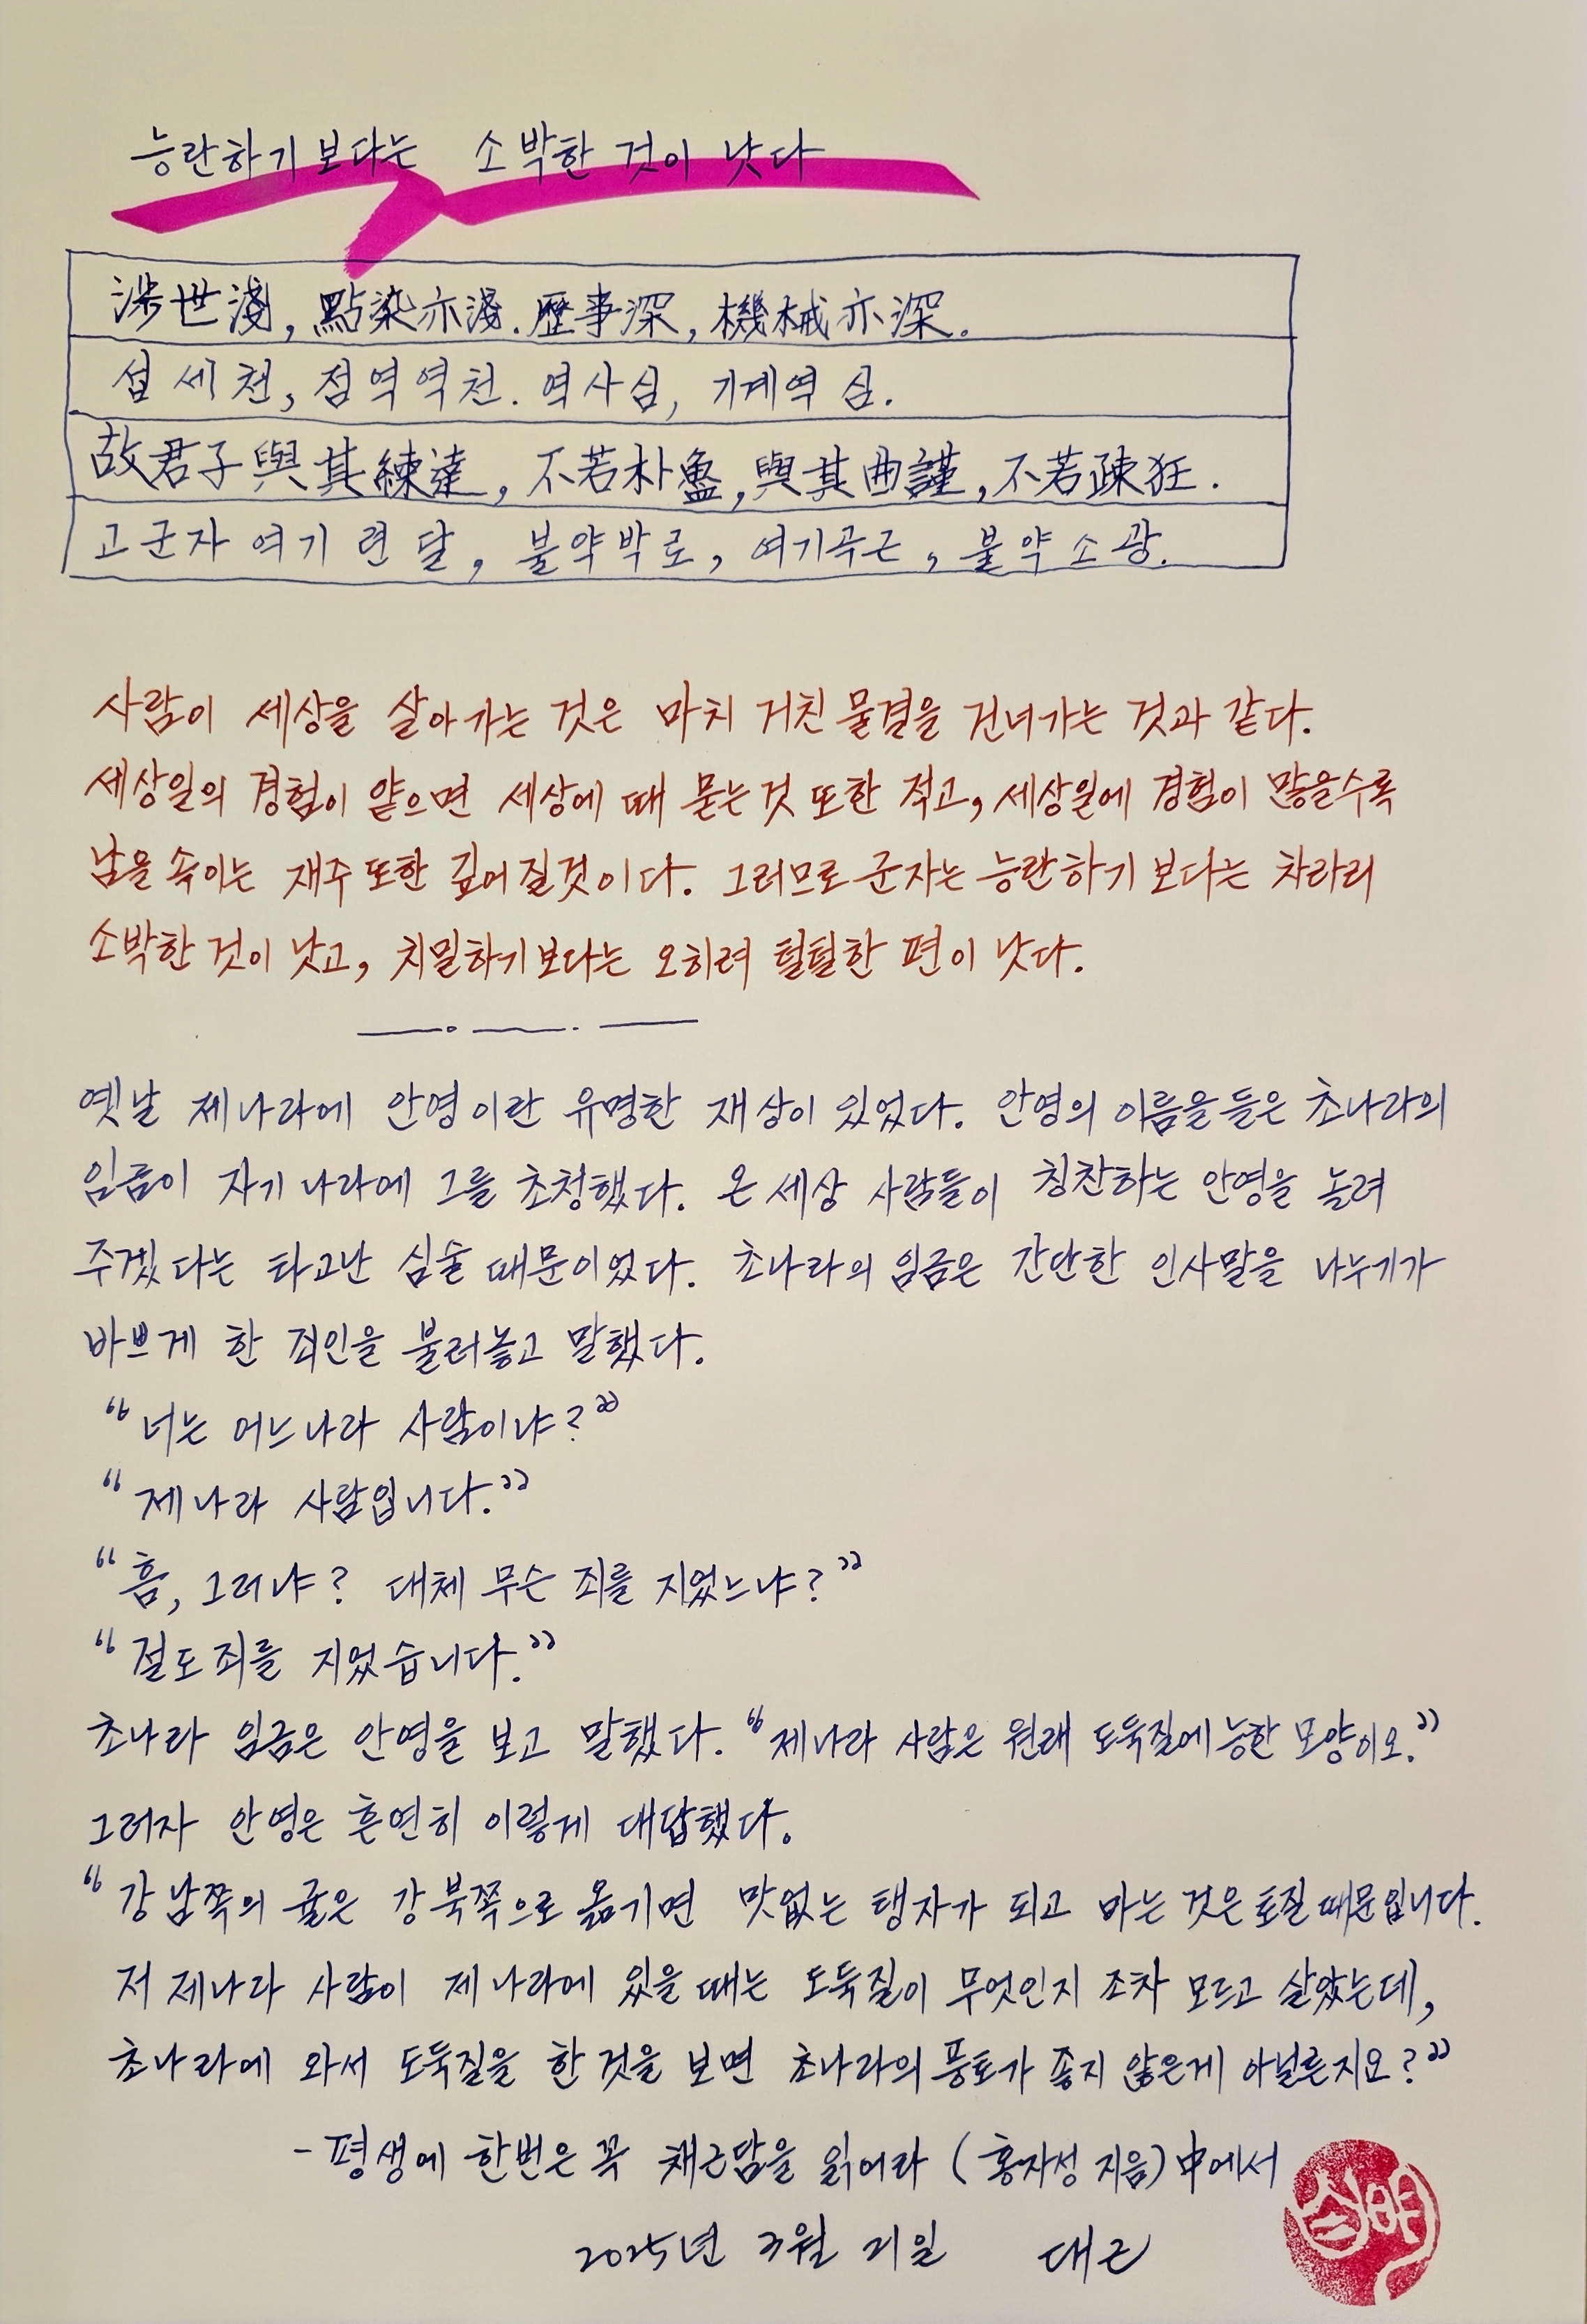 능란하기 보다는 소박한 것이 낫다
涉世淺, 點染亦淺. 歷事深, 機械亦深.
섭세천, 점역역천. 역사심, 기계역심.
故君子與其練達, 不若朴魯, 與其曲謹, 不若疎狂.
고군자 여기련달, 불약박로, 여기곡근, 불약소광.
사람이 세상을 살아가는 것은 마치 거친 물결을 건너가는 것과 같다.
세상일의 경험이 얕으면 세상에 때 묻는것 또한 적고, 세상일에 경험이 많을수록
남을 속이는 재주 또한 깊어질것이다. 그러므로 군자는 능란하기 보다는 차라리
소박한 것이 낫고, 치밀하기보다는 오히려 털털한 편이 낫다.
옛날 제나라에 안영이란 유명한 재상이 있었다. 안영의 이름을 들은 초나라의
임금이 자기나라에 그를 초청했다. 온 세상 사람들이 칭찬하는 안영을 놀려
주겠다는 타고난 심술 때문이었다. 초나라의 임금은 간단한 인사말을 나누기가
바쁘게 한 죄인을 불러놓고 말했다.
"너는 어느나라 사람이냐?"
"제나라 사람입니다."
"흠, 그러냐? 대체 무슨 죄를 지었느냐?"
"절도죄를 지었습니다."
초나라 임금은 안영을 보고 말했다. "제나라 사람은 원래 도둑질에 능한 모양이오."
그러자 안영은 흔연히 이렇게 대답했다.
"강남쪽의 귤은 강북쪽으로 옮기면 맛없는 탱자가 되고 마는 것은 토질때문입니다.
저 제나라 사람이 제나라에 있을 때는 도둑질이 무엇인지 조차 모르고 살았는데,
초나라에 와서 도둑질을 한 것을 보면 초나라의 풍토가 좋지 않은게 아닐른지요?"
- 평생에 한번은 꼭 채근담을 읽어라 (홍자성 지음) 中에서
2025년 3월 21일 대근